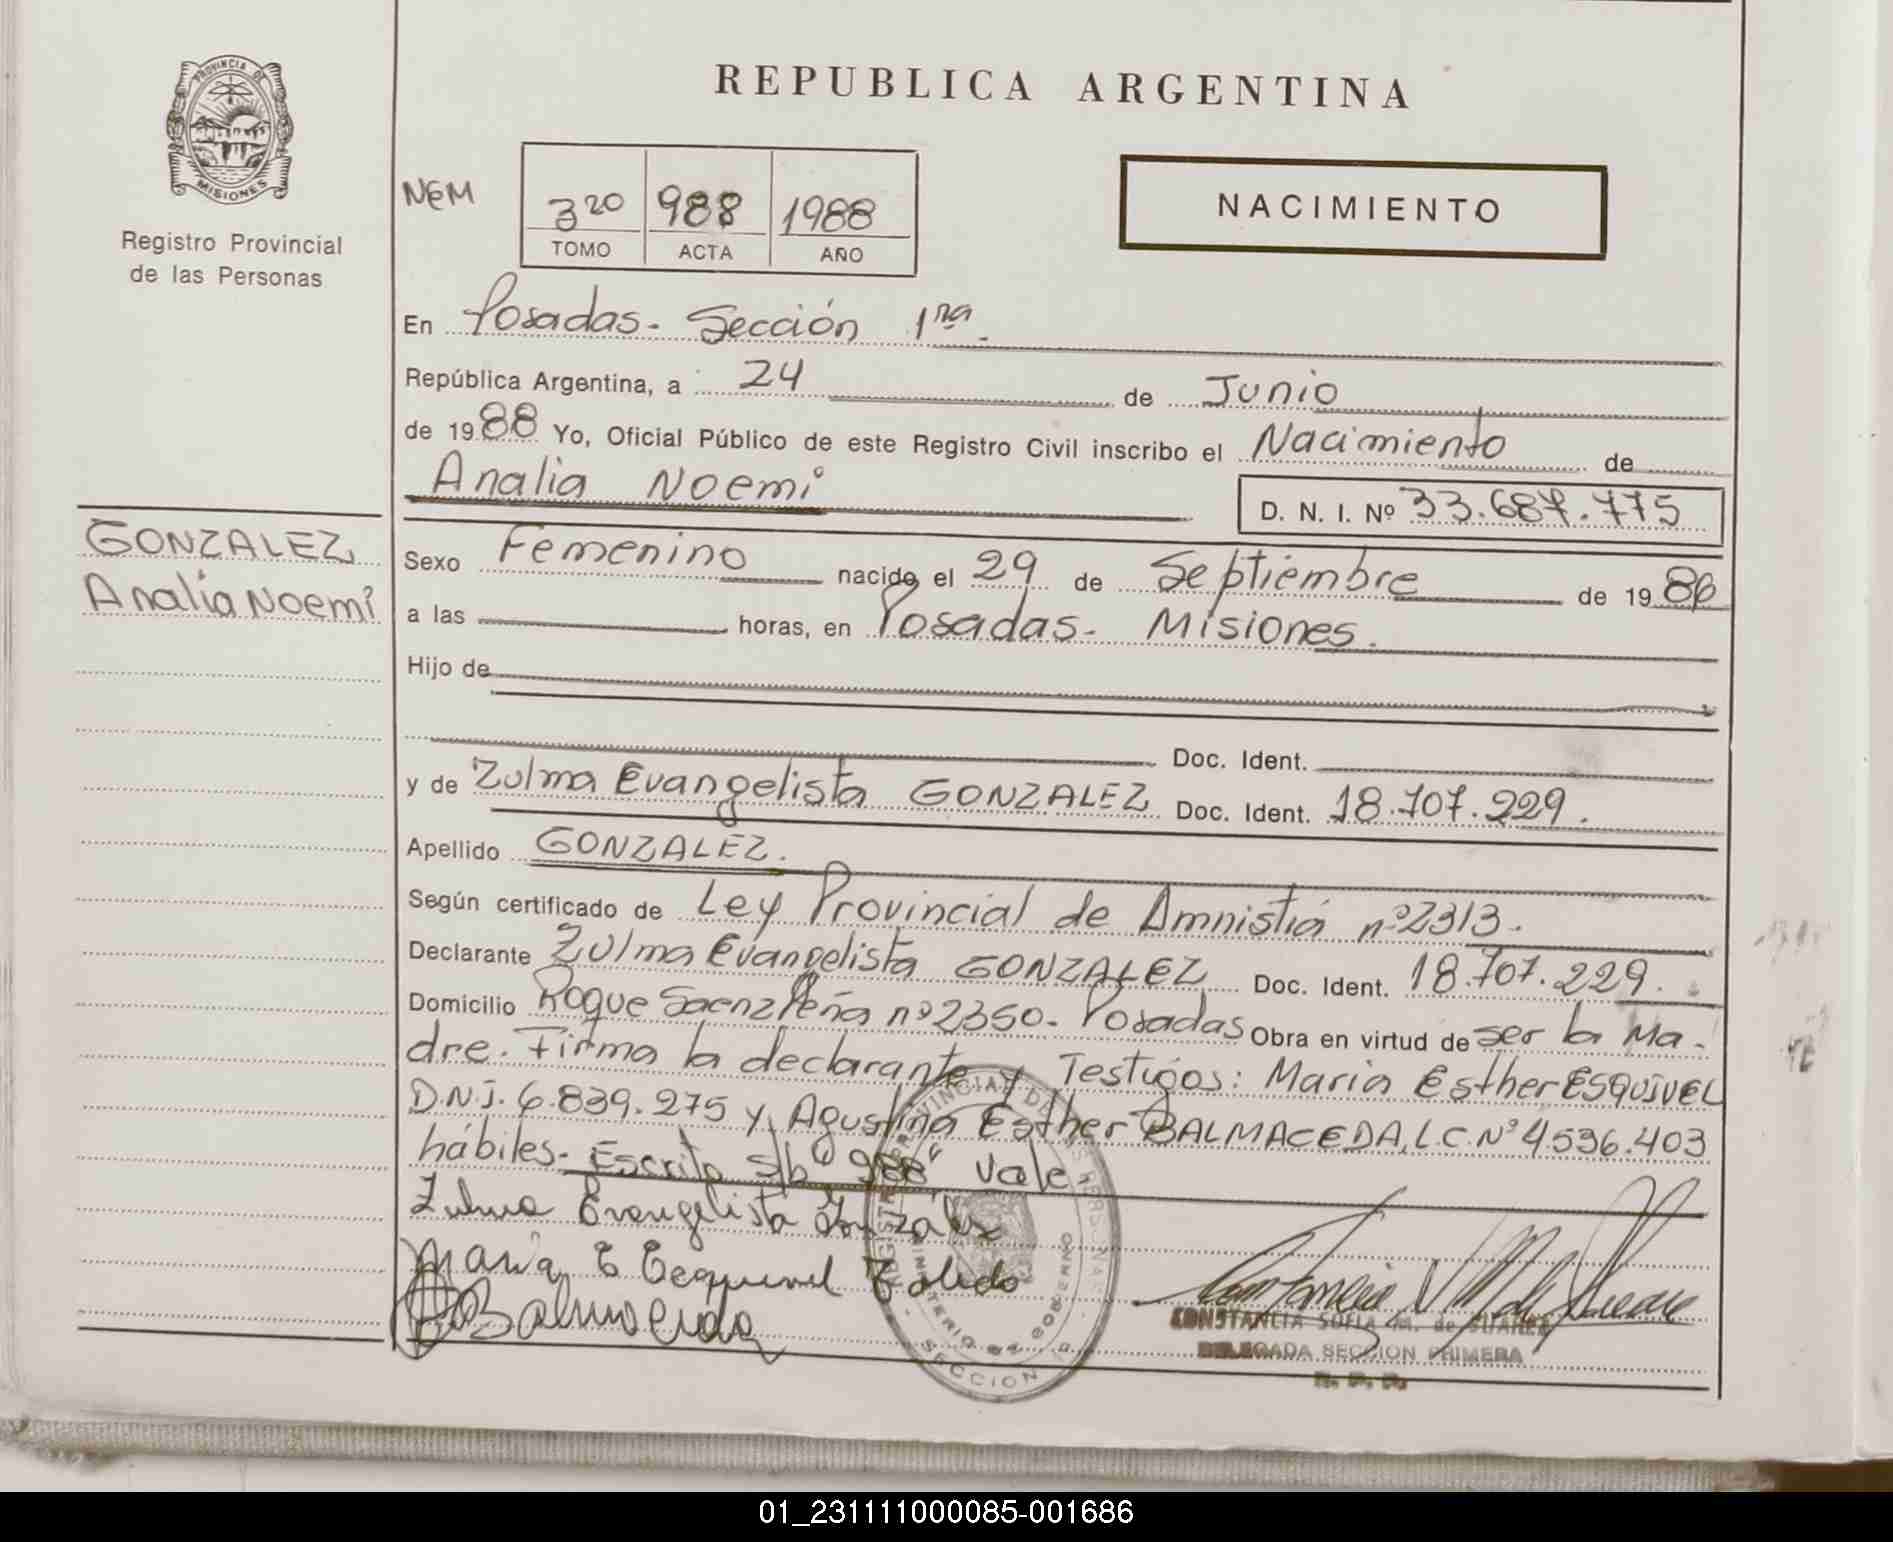 PROVINCIA DE
MISIONES
Registro Provincial
de las Personas
REPUBLICA ARGENTINA
NEM
320 988 1988
TOMO ACTA AÑO
NACIMIENTO
En Posadas. Sección 1ra.
República Argentina, a 24 de Junio
de 1988 Yo, Oficial Público de este Registro Civil inscribo el Nacimiento de
Analia Noemi
D. N. I. Nº 33.687.775
GONZALEZ
Analia Noemi
Sexo Femenino nacido el 29 de Septiembre de 1986
a las horas, en Posadas. Misiones.
Hijo de
Doc. Ident.
y de Zulma Evangelista GONZALEZ Doc. Ident. 18.707.229.
Apellido GONZALEZ.
Según certificado de Ley Provincial de Amnistiá nº2313.
Declarante Zulma Evangelista GONZALEZ Doc. Ident. 18.707.229.
Domicilio Roque Saenz Peña nº2350. Posadas Obra en virtud de ser la Ma-
dre. Firma la declarante y Testigos: Maria Esther ESQUIVEL
D.N.I. 6.839.275 y Agustina Esther BALMACEDA, L.C. Nº 4.536.403
hábiles. Escrito s/b "988" Vale.
Zulma Evangelista González
Maria E Esquivel Toledo
Balmaceda
SECCION
MINISTERIO DE GOBIERNO
CONSTANCIA SOFIA M. de SUAREZ
DELEGADA SECCION PRIMERA
R. P. P.
01_231111000085-001686